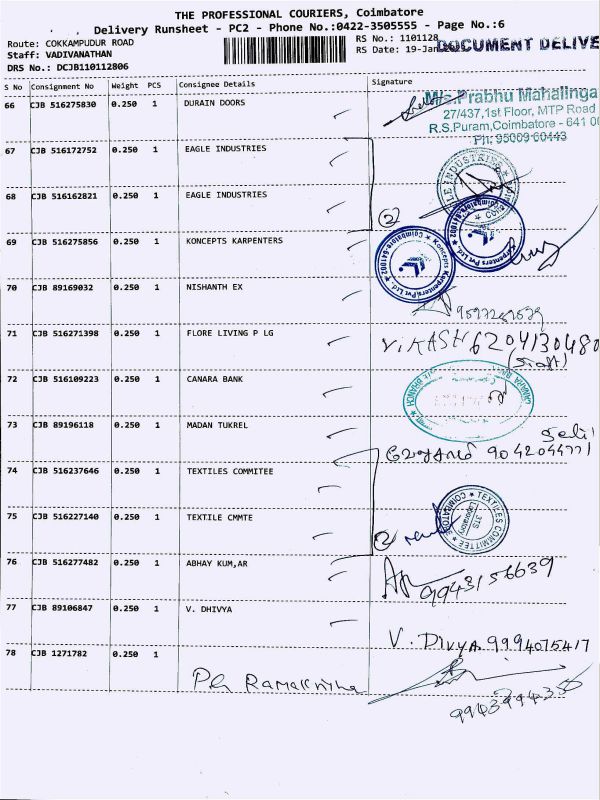 THE PROFESSIONAL COURIERS, Coimbatore
Delivery Runsheet - PC2 - Phone No.:0422-3505555 - Page No.:6
Route: COKKAMPUDUR ROAD RS No.: 1101128
Staff: VADIVANATHAN RS Date: 19-Jan DOCUMENT DELIVE
DRS No.: DCJB110112806
S No Consignment No Weight PCS Consignee Details Signature
66 CJB 516275830 0.250 1 DURAIN DOORS
M/s.Prabhu Mahalinga
27/437,1st Floor, MTP Road
R.S.Puram,Coimbatore - 641 00
Ph: 95009 60443
67 CJB 516172752 0.250 1 EAGLE INDUSTRIES
68 CJB 516162821 0.250 1 EAGLE INDUSTRIES
2
69 CJB 516275856 0.250 1 KONCEPTS KARPENTERS
Koncepts Karpenters Pvt Ltd. Coimbatore-641002
70 CJB 89169032 0.250 1 NISHANTH EX
71 CJB 516271398 0.250 1 FLORE LIVING P LG
ViKASH 6204130480
72 CJB 516109223 0.250 1 CANARA BANK
73 CJB 89196118 0.250 1 MADAN TUKREL
9042044771
74 CJB 516237646 0.250 1 TEXTILES COMMITEE
75 CJB 516227140 0.250 1 TEXTILE CMMTE
TEXTILES COMMITTEE COIMBATORE
2
76 CJB 516277482 0.250 1 ABHAY KUM,AR
9943156639
77 CJB 89106847 0.250 1 V. DHIVYA
V. Divya 9994075417
78 CJB 1271782 0.250 1